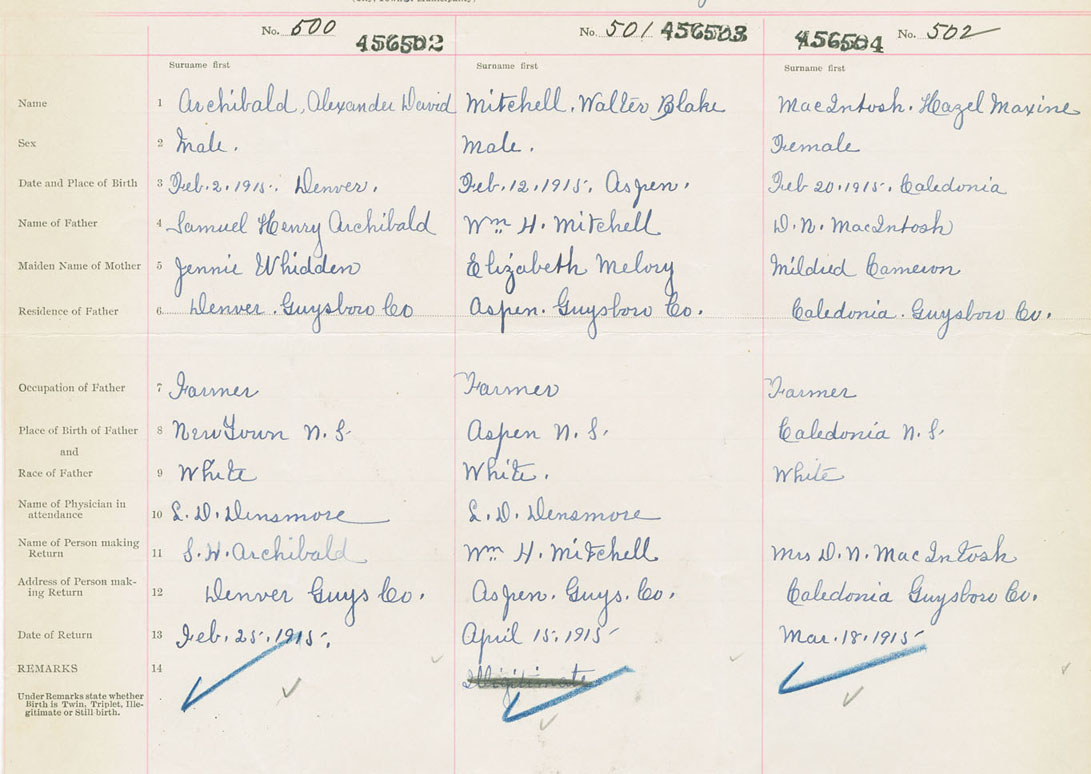 No. 500 456502 No. 501 456503 456504 No. 502
Surname first Surname first Surname first
Name 1 Archibald, Alexander David Mitchell, Walter Blake MacIntosh. Hazel Maxine
Sex 2 Male. Male. Female
Date and Place of Birth 3 Feb. 2, 1915. Denver. Feb. 12, 1915. Aspen. Feb 20, 1915. Caledonia
Name of Father 4 Samuel Henry Archibald Wm H. Mitchell D. N. MacIntosh
Maiden Name of Mother 5 Jennie Whidden Elizabeth Mildred Cameron
Residence of Father 6 Denver. Guysboro Co Aspen. Guysboro Co. Caledonia. Guysboro Co.
Occupation of Father 7 Farmer Farmer Farmer
Place of Birth of Father 8 New Town N. S. Aspen N. S. Caledonia N. S.
and
Race of Father 9 White White. White
Name of Physician in
attendance 10 L. D. Densmore L. D. Densmore
Name of Person making
Return 11 S. H. Archibald Wm H. Mitchell Mrs D. N. MacIntosh
Address of Person mak-
ing Return 12 Denver Guys Co. Aspen. Guys. Co. Caledonia Guysboro Co.
Date of Return 13 Feb. 25, 1915. April 15, 1915 Mar. 18, 1915
REMARKS 14 Illigitimate
Under Remarks state whether
Birth is Twin, Triplet, Ille-
gitimate or Still-birth.